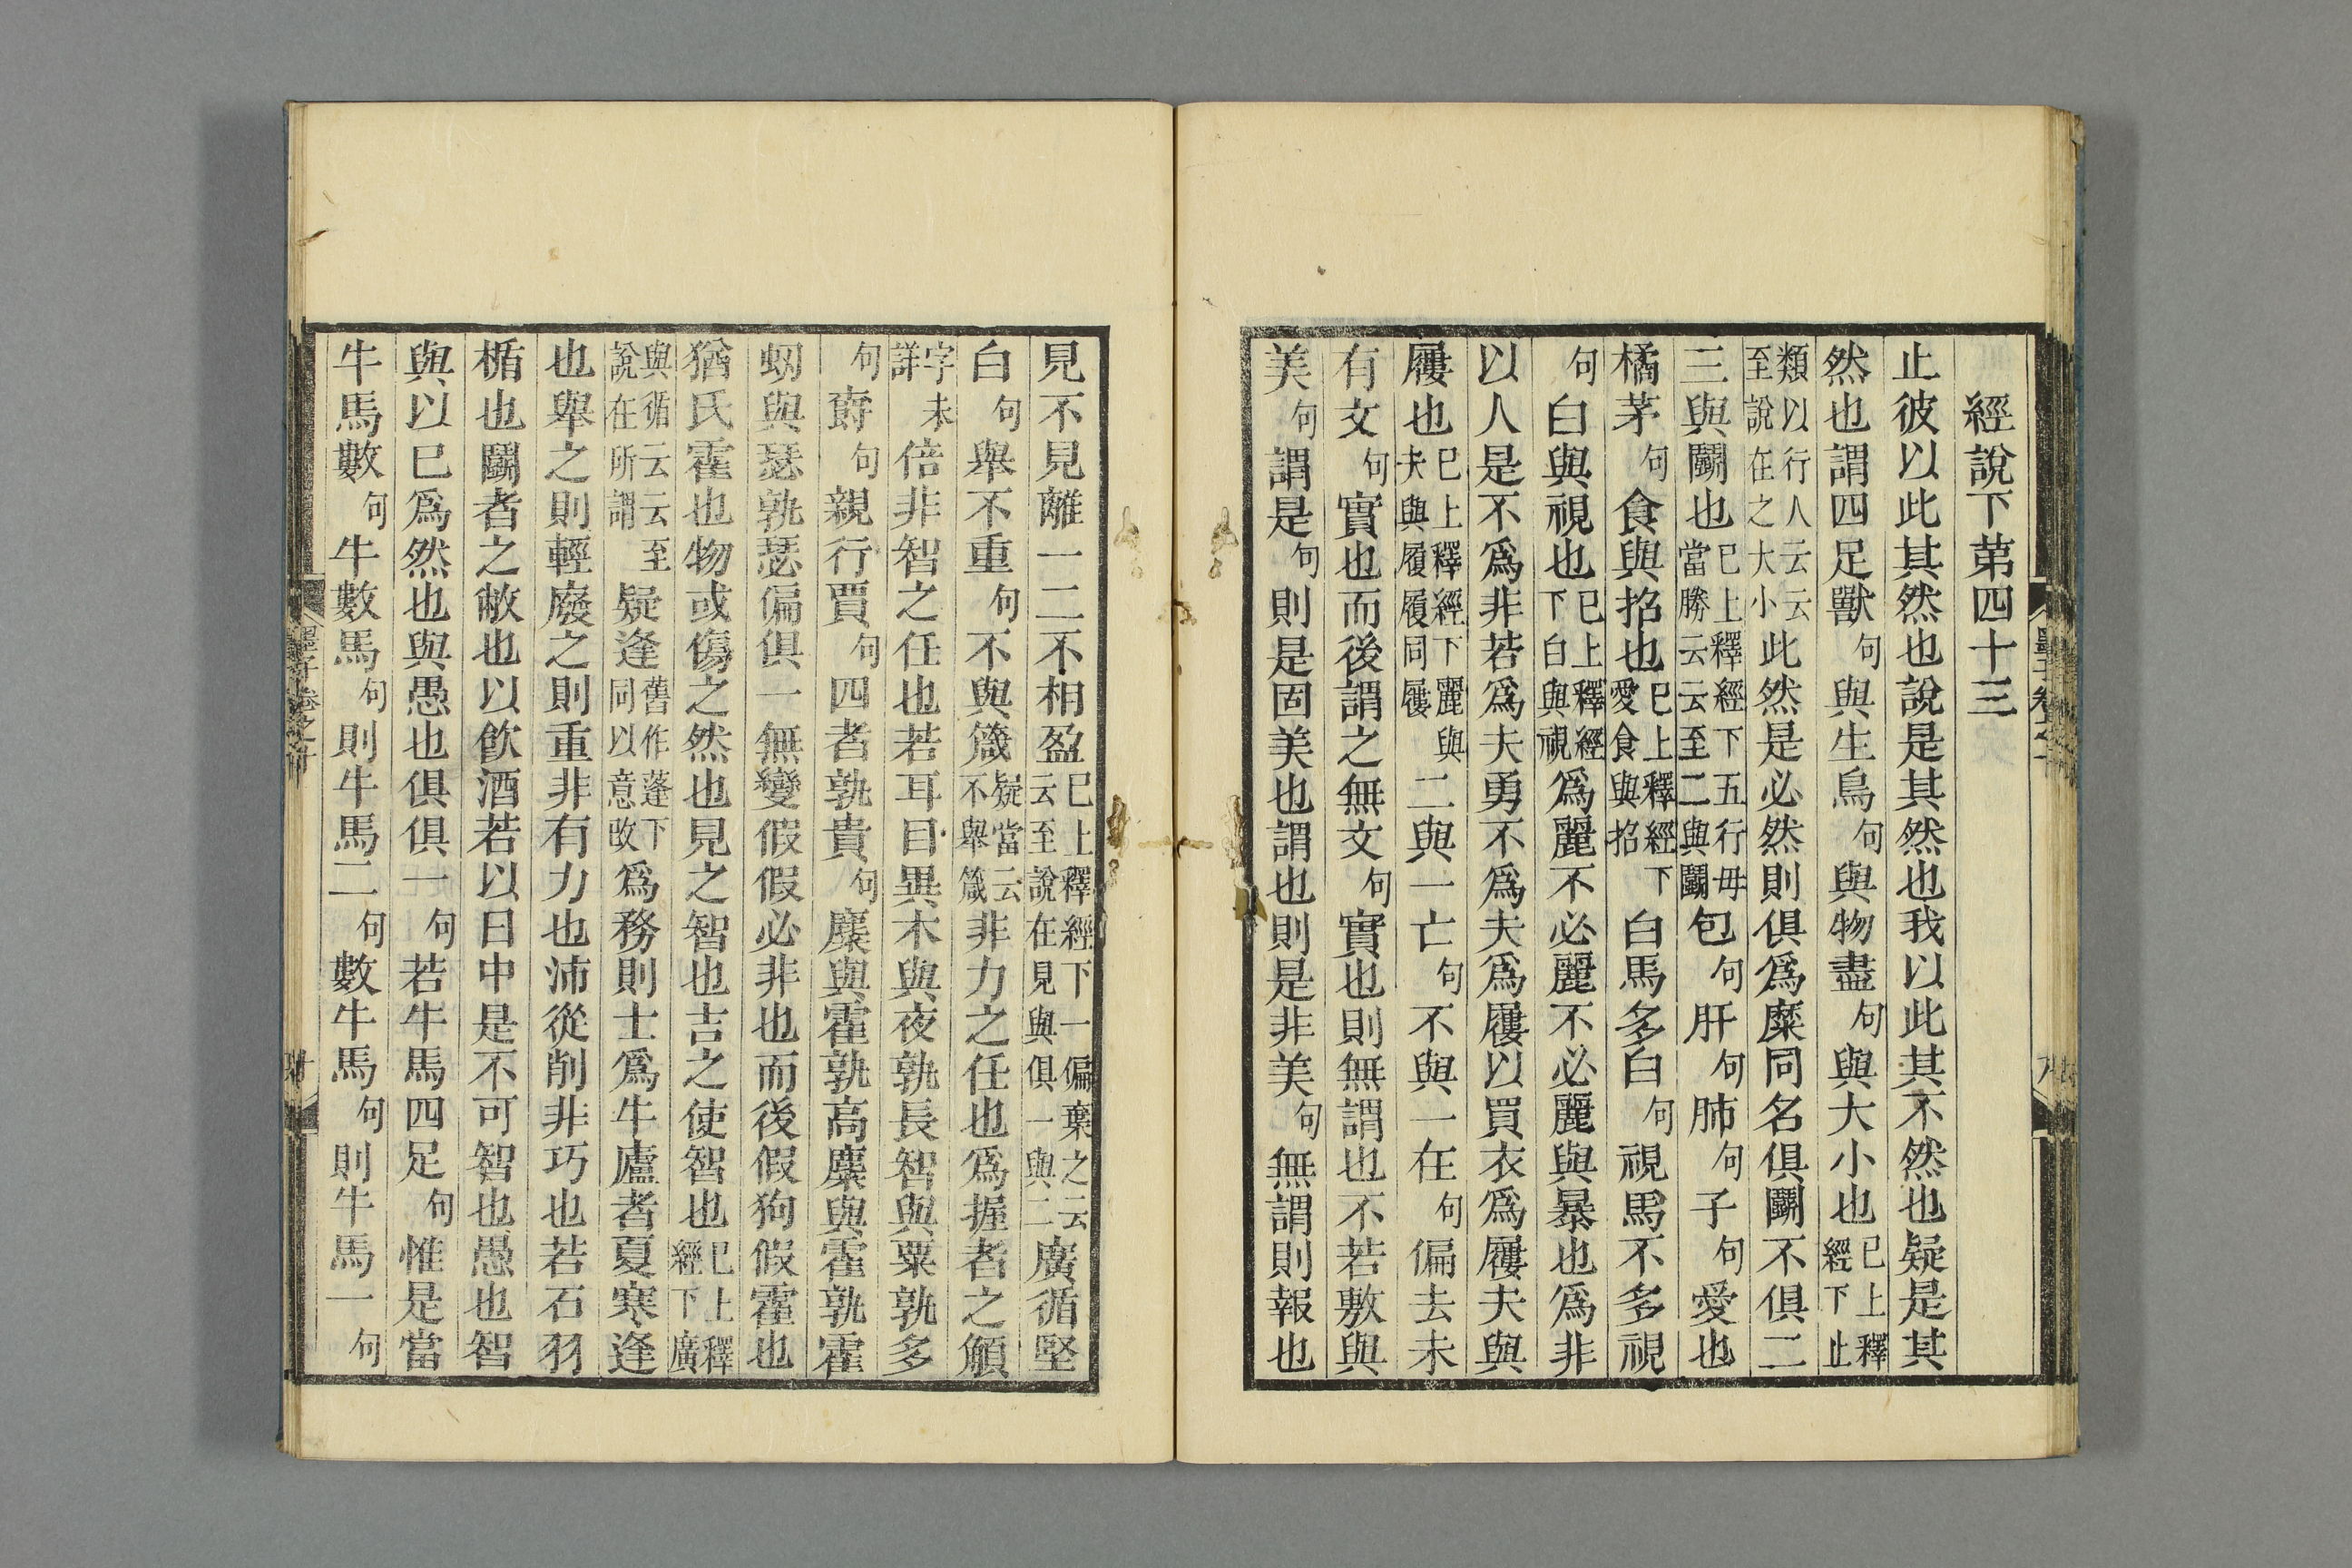 經說下第四十三
止彼以此其然也說是其然也我以此其不然也疑是其
然也謂四足獸句與生鳥句與物盡句與大小也已上釋經下止
類以行人云云至說在之大小此然是必然則俱爲糜同名俱鬭不俱二
三與鬭也已上釋經下五行毋當勝云云至二與鬭包句肝句肺句子句愛也
橘茅句食與招也已上釋經下愛食與招白馬多白句視馬不多視
句白與視也已上釋經下白與視爲麗不必麗不必麗與暴也爲非
以人是不爲非若爲夫勇不爲夫爲屨以買衣爲屨夫與
屨也已上釋經下麗與夫與履履同屨二與一亡句不與一在句偏去未
有文句實也而後謂之無文句實也則無謂也不若敷與
美句謂是句則是固美也謂也則是非美句無謂則報也
見不見離一二不相盈已上釋經下一偏棄之云云至說在見與俱一與二廣循堅
白句舉不重句不與箴疑當云不舉箴非力之任也爲握者之頠
字未詳倍非智之任也若耳目異木與夜孰長智與粟孰多
句爵句親行賈句四者孰貴句麋與霍孰高麋與霍孰霍
蚓與瑟孰瑟偏俱一無變假假必非也而後假狗假霍也
猶氏霍也物或傷之然也見之智也吉之使智也已上釋經下廣
與循云云至說在所謂疑逢舊作蓬下同以意改爲務則士爲牛廬者夏寒逢
也舉之則輕廢之則重非有力也沛從削非巧也若石羽
楯也鬭者之敝也以飲酒若以日中是不可智也愚也智
與以已爲然也與愚也俱俱一句若牛馬四足句惟是當
牛馬數句牛數馬句則牛馬二句數牛馬句則牛馬一句
墨子卷之十